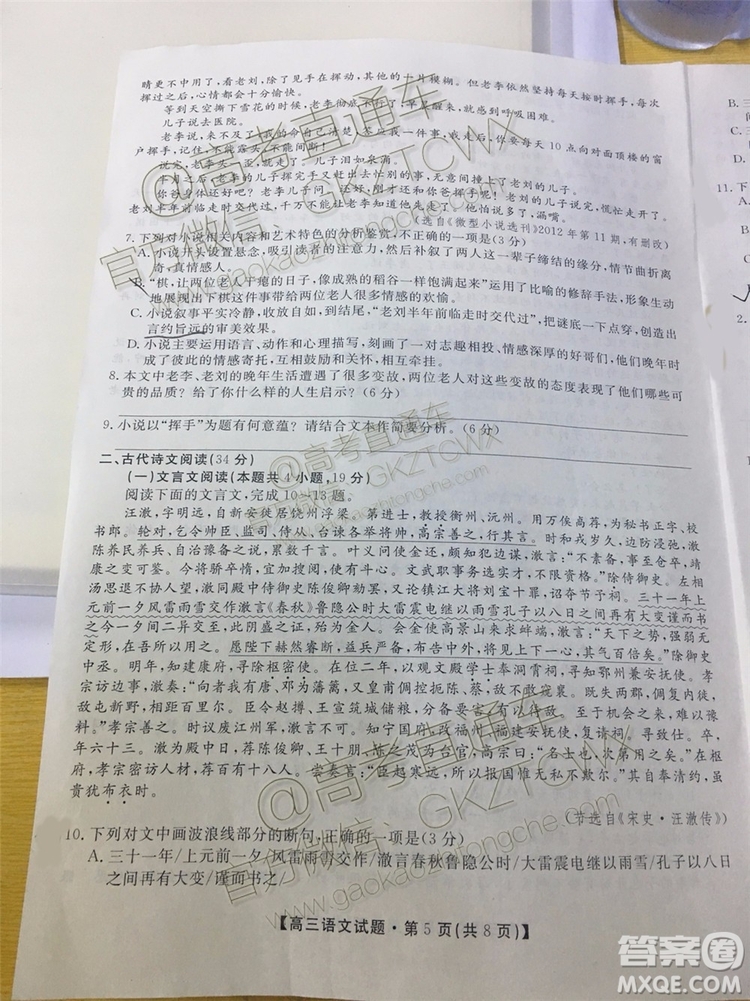 睛更不中用了，看老刘，除了见手在挥动，其他的一片模糊。但老李依然坚持每天按时挥手，每次
挥过之后，心情都会十分愉快。
等到天空撕下雪花的时候，老李
儿子说去医院。
老李说
户挥手，记住，不能露头，不能间断！
说完，老李头一歪，走了。儿子泪如泉涌。
一个月之后，老李的儿子挥完手又赶出去忙别的事，无意间撞上了老刘的儿子。
你爸身体还好吧？老李儿子问。还好，刚才还和你爸挥手呢！
老刘半年前临走时交代过，千万不能
（选自《微型小说选刊》2012年第11期，有删改）
7. 下列对小说相关内容和艺术特色的分析鉴赏，不正确的一项是(3分)
A. 小说片头设置悬念，吸引读者的注意力，然后补叙了两人这一辈子缔结的缘分，情节离
奇，真情感人。
B. “棋，让两位老人平庸的日子，像成熟的稻谷一样饱满起来”运用了比喻的修辞手法，形象
地展现出下棋这件事带给两位老人很多情感的欢愉。
C. 小说叙事平实冷静，收放自如，到结尾的“老刘半年前临走时交代过”，主题一下点穿，创设出
言约旨远的审美效果。
D. 小说主要运用语言、动作和心理描写，刻画了一对志趣相投、情感深厚的好哥们，他们晚年时
彼此的情感寄托，折射出人性的光芒。
8. 本文中老李、老刘的晚年生活遭遇了很多变故，两位老人对这些变故的态度表现了他们哪些可
贵的品质？给了你什么样的人生启示？(6分)
9. 小说以“挥手”为题有何意蕴？请结合文本作简要分析。(6分)
二、古代诗文阅读(34分)
(一)文言文阅读(本题共4小题，19分)
阅读下面的文言文，完成10～13题。
汪澈，字明远，自新安徙居饶州浮梁。第进士，教授衡州、沅州。用万俟卨荐，为秘书正字、校
书郎。轮对，乞令帅臣、监司、侍从、台谏各举将帅，高宗善之，行其言。时和戎岁久，边防浸弛，澈
陈养民养兵、自治豫备之说，累数千言。叶义问使金还，颇知犯边谋，澈言：“不素备，事至仓卒，靖
康之变可鉴。今将骄卒惰，宜加搜阅，使有斗心。文武职事务选实才，不限资格。”除侍御史。左相汤
思退不协人望，澈同殿中侍御史陈俊卿劾罢，又论镇江大将刘宝十罪，诏夺节予祠。三十一年上
元前一夕风雷雨雪交作澈言《春秋》鲁隐公时大雷震电继以雨雪孔子以八日之间再有大变谨而书
之今一夕间二异交至，此阴盛之证，殆为金人。会金使高景山来求衅端，澈言：“天下之势，强弱无
定形，在吾所以用之。愿陛下赫然睿断，益兵严备，布告中外，将见上下一心，其气百倍矣。”除御史
中丞。明年，知建康府，寻除枢密使。在位二年，以观文殿学士奉洞霄祠，寻知鄂州兼安抚使。孝
宗访边事，澈奏：“向者我有唐、邓为藩篱，又皇甫倜控扼陈、蔡，敌不敢窥襄。既失两郡，倜复内徙，
敌屯新野，相距百里尔。臣令赵撙、王宣筑城储粮，分备要害，有以待敌。至于机会之来，难以豫
料。”孝宗善之。时议废江州军，澈言不可。知宁国府，改福州，福建安抚使。复请祠，寻致仕。卒，
年六十三。澈为殿中日，荐陈俊卿、王十朋、陈之茂为台官，高宗曰：“名士也，次第用之。”在枢府，
孝宗密访人材，荐百有十八人。尝奏言：“臣起寒远，所以报国惟无私不欺尔。”其自奉清约，虽
贵犹布衣时。
（节选自《宋史·汪澈传》）
10. 下列对文中画波浪线部分的断句，正确的一项是(3分)
A. 三十一年/上元前一夕/风雷雨雪交作/澈言春秋鲁隐公时/大雷震电继以雨雪/孔子以八日
之间再有大变/谨而书之
【高三语文试题·第5页(共8页)】
B.
间
D.
11.
2.
官方微信：GKZTCWX
@高考直通车
www.gaokaozhitongche.com
答案圈
MXQE.COM